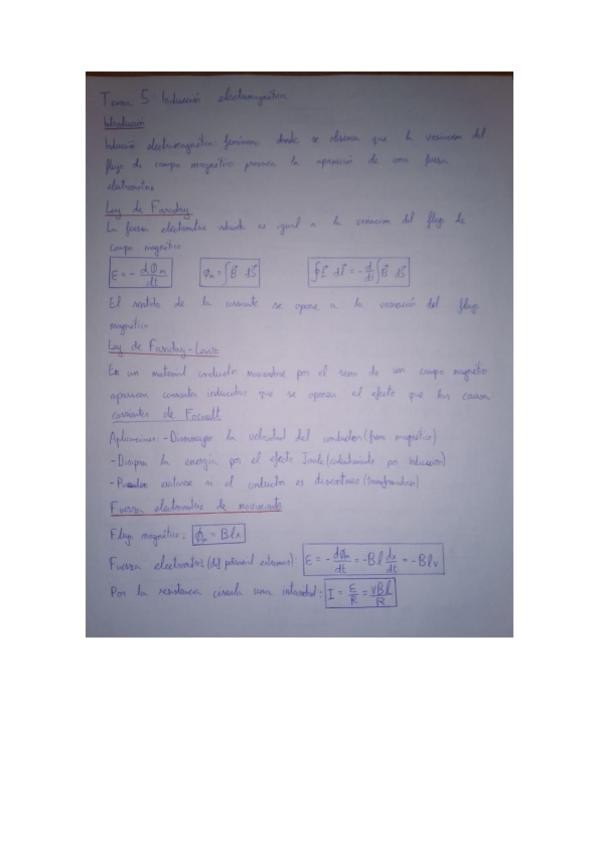 Tema 5: Inducción electromagnética
Introducción
Inducción electromagnética: fenómeno donde se observa que la variación del
flujo de campo magnético provoca la aparición de una fuerza
electromotriz
Ley de Faraday
La fuerza electromotriz inducida es igual a la variación del flujo de
campo magnético
ε = - dΦm/dt    Φm = ∫B⃗ dS⃗    ∮E⃗ dl⃗ = - d/dt ∫B⃗ dS⃗
El sentido de la corriente se opone a la variación del flujo
magnético
Ley de Faraday-Lenz
En un material conductor moviendose por el seno de un campo magnético
aparecen corrientes inducidas que se oponen al efecto que las causa
corrientes de Focault
Aplicaciones: - Disminuyen la velocidad del conductor (freno magnético)
- Disipan la energía por el efecto Joule (calentamiento por inducción)
- Pueden evitarse si el conductor es discontinuo (transformadores)
Fuerza electromotriz de movimiento
Flujo magnético: Φm = Blx
Fuerza electromotriz (dif potencial extremos): ε = - dΦm/dt = -Bl dx/dt = -Blv
Por la resistencia circula una intensidad: I = ε/R = vBl/R